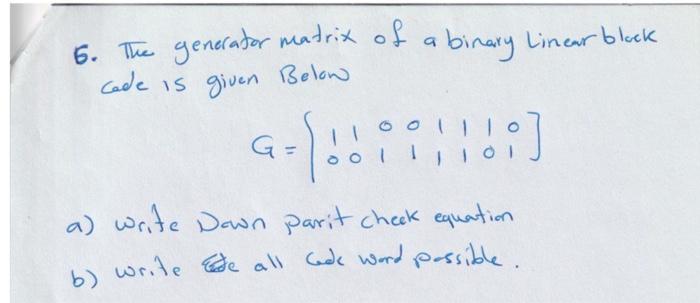 6. The generator matrix of a binary Linear block
code is given Below
G = [ 1 1 0 0 1 1 1 0 ]
0 0 1 1 1 1 0 1
a) write Down parit check equation
b) write all code word possible.